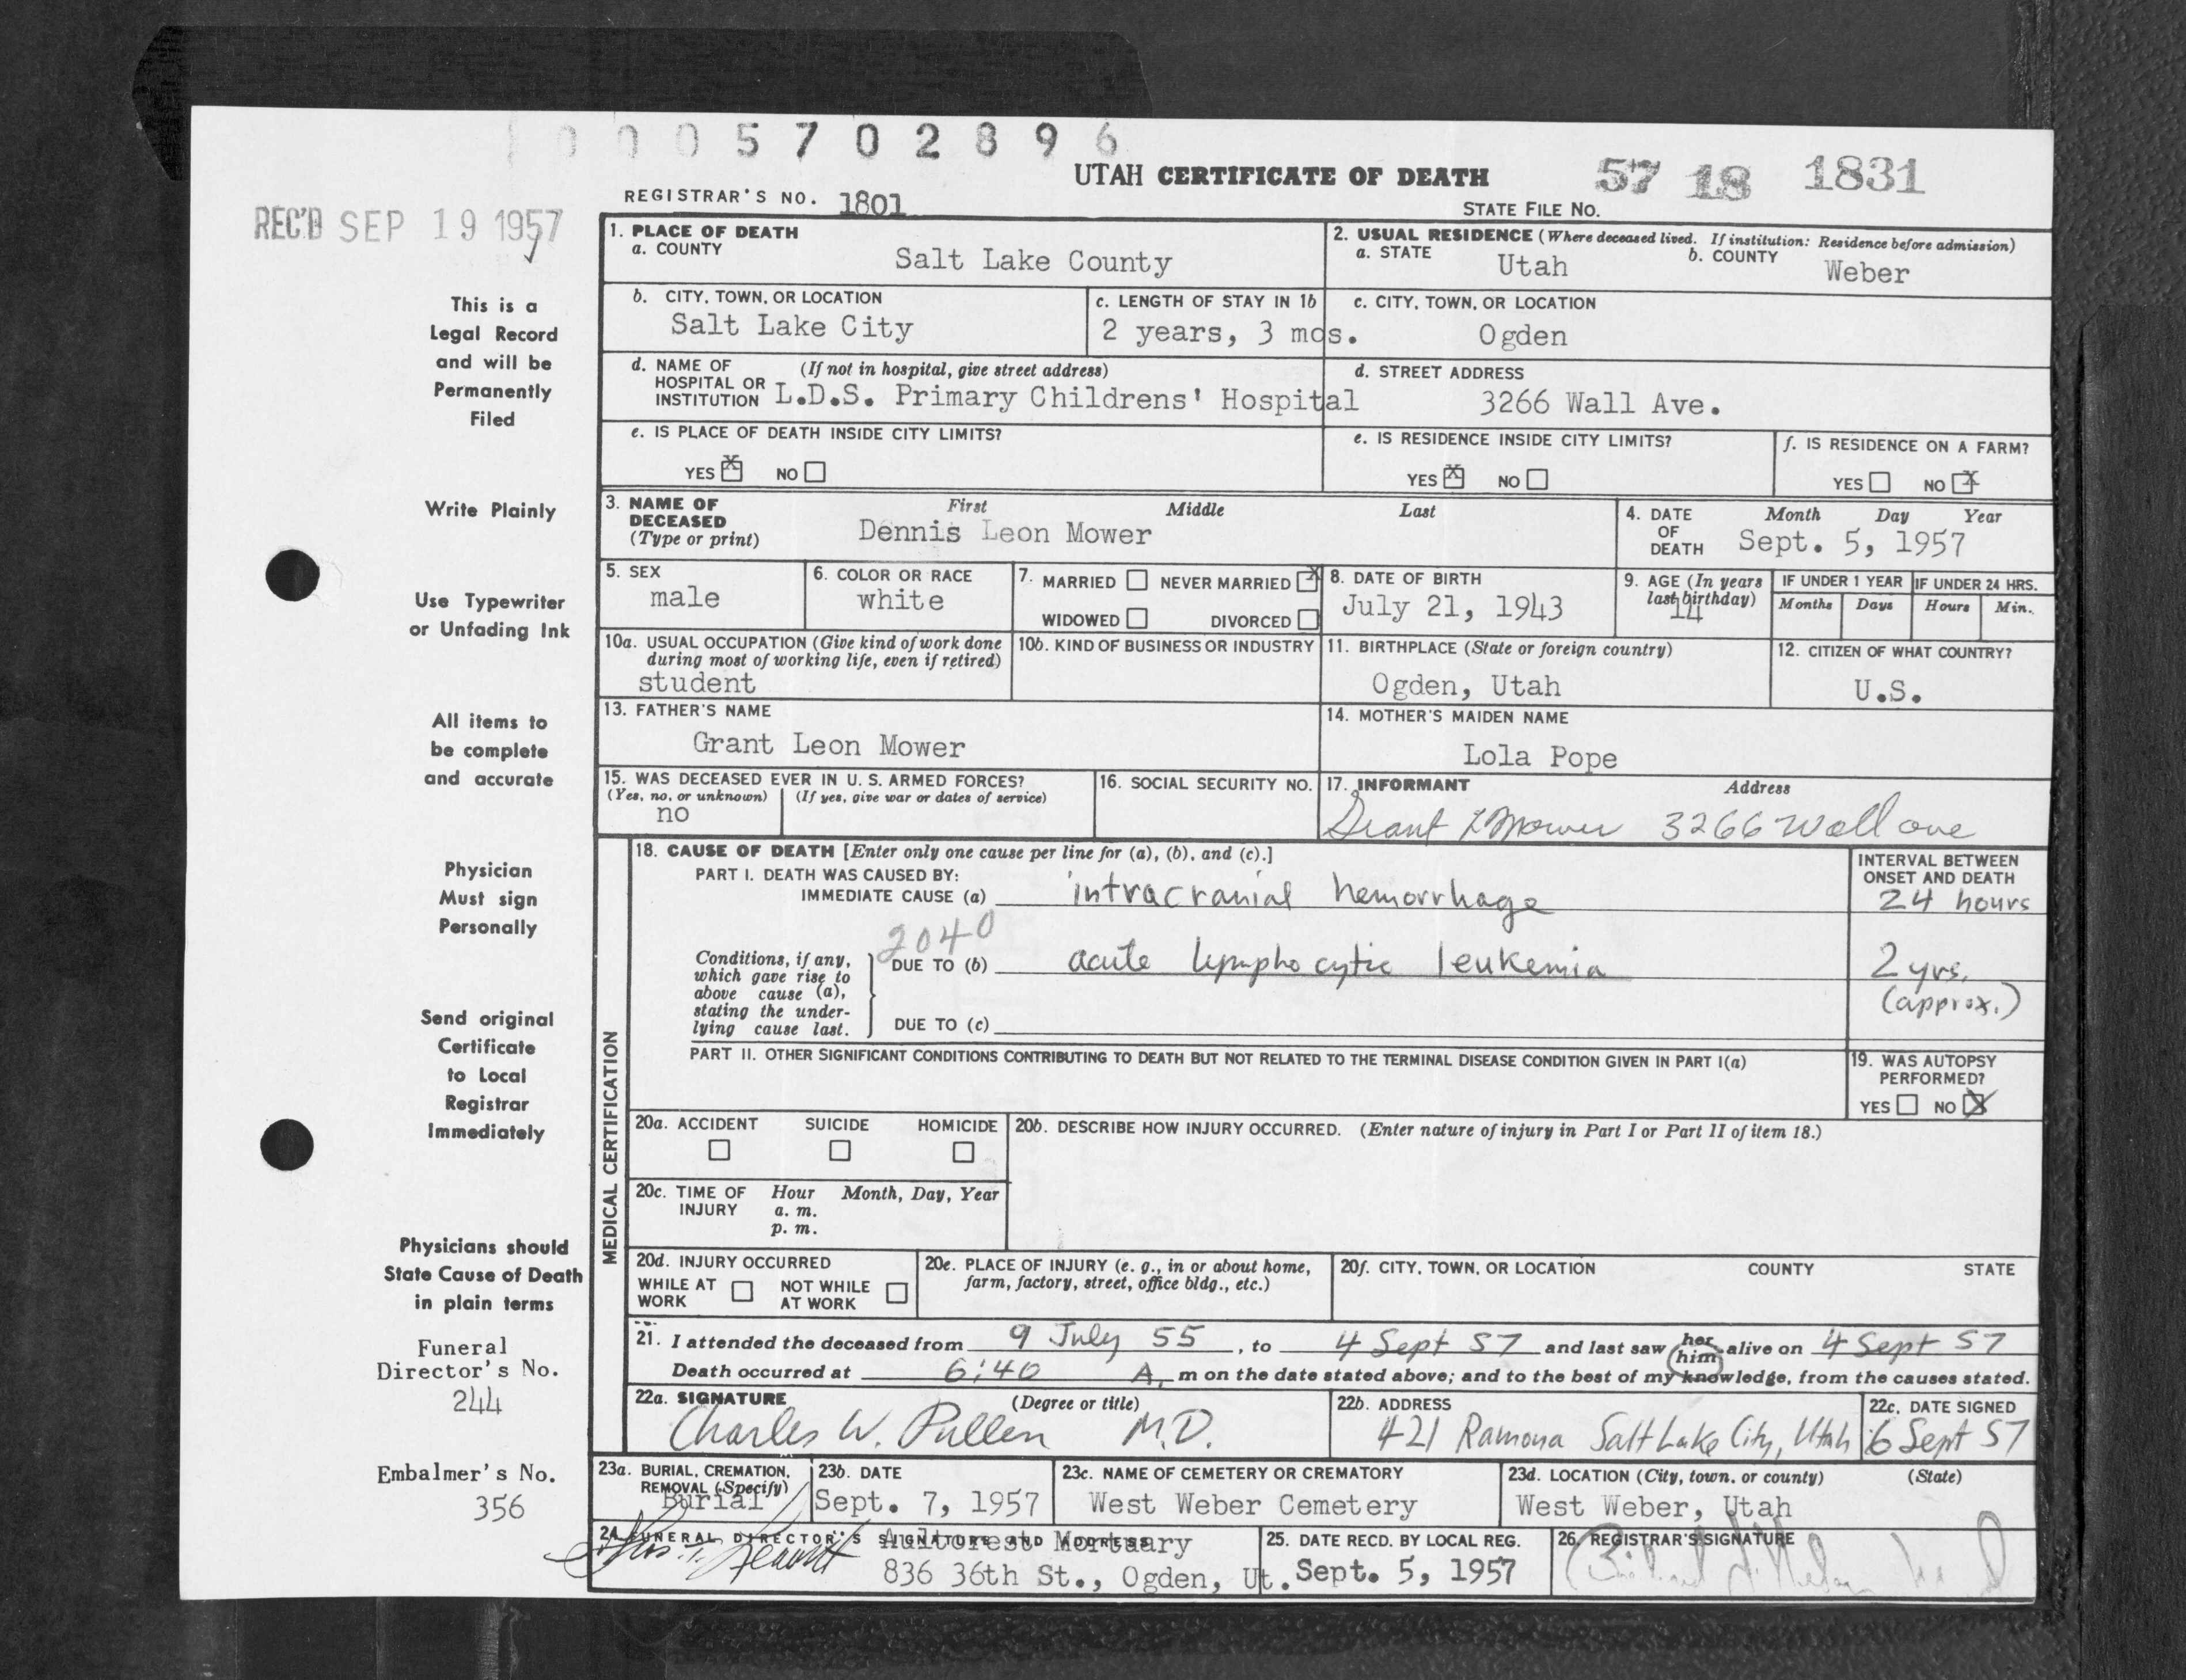 10005702896
UTAH CERTIFICATE OF DEATH
57 18 1831
REGISTRAR'S NO. 1801
STATE FILE NO.
REC'D SEP 19 1957
This is a
Legal Record
and will be
Permanently
Filed
Write Plainly
Use Typewriter
or Unfading Ink
All items to
be complete
and accurate
Physician
Must sign
Personally
Send original
Certificate
to Local
Registrar
Immediately
Physicians should
State Cause of Death
in plain terms
Funeral
Director's No.
244
Embalmer's No.
356
1. PLACE OF DEATH
a. COUNTY
Salt Lake County
2. USUAL RESIDENCE (Where deceased lived. If institution: Residence before admission)
a. STATE
Utah
b. COUNTY
Weber
b. CITY, TOWN, OR LOCATION
Salt Lake City
c. LENGTH OF STAY IN 1b
2 years, 3 mos.
c. CITY, TOWN, OR LOCATION
Ogden
d. NAME OF (If not in hospital, give street address)
HOSPITAL OR
INSTITUTION L.D.S. Primary Childrens' Hospital
d. STREET ADDRESS
3266 Wall Ave.
e. IS PLACE OF DEATH INSIDE CITY LIMITS?
YES X NO
e. IS RESIDENCE INSIDE CITY LIMITS?
YES X NO
f. IS RESIDENCE ON A FARM?
YES NO X
3. NAME OF
DECEASED
(Type or print)
First Middle Last
Dennis Leon Mower
4. DATE
OF
DEATH
Month Day Year
Sept. 5, 1957
5. SEX
male
6. COLOR OR RACE
white
7. MARRIED NEVER MARRIED X
WIDOWED DIVORCED
8. DATE OF BIRTH
July 21, 1943
9. AGE (In years
last birthday)
14
IF UNDER 1 YEAR IF UNDER 24 HRS.
Months Days Hours Min.
10a. USUAL OCCUPATION (Give kind of work done
during most of working life, even if retired)
student
10b. KIND OF BUSINESS OR INDUSTRY
11. BIRTHPLACE (State or foreign country)
Ogden, Utah
12. CITIZEN OF WHAT COUNTRY?
U.S.
13. FATHER'S NAME
Grant Leon Mower
14. MOTHER'S MAIDEN NAME
Lola Pope
15. WAS DECEASED EVER IN U. S. ARMED FORCES?
(Yes, no, or unknown) (If yes, give war or dates of service)
no
16. SOCIAL SECURITY NO.
17. INFORMANT Address
Grant L Mower 3266 Wall ave
MEDICAL CERTIFICATION
18. CAUSE OF DEATH [Enter only one cause per line for (a), (b), and (c).]
PART I. DEATH WAS CAUSED BY:
IMMEDIATE CAUSE (a) intracranial hemorrhage
INTERVAL BETWEEN
ONSET AND DEATH
24 hours
2040
Conditions, if any,
which gave rise to
above cause (a),
stating the under-
lying cause last.
DUE TO (b) acute lymphocytic leukemia
2 yrs.
(approx.)
DUE TO (c)
PART II. OTHER SIGNIFICANT CONDITIONS CONTRIBUTING TO DEATH BUT NOT RELATED TO THE TERMINAL DISEASE CONDITION GIVEN IN PART I(a)
19. WAS AUTOPSY
PERFORMED?
YES NO X
20a. ACCIDENT SUICIDE HOMICIDE
20b. DESCRIBE HOW INJURY OCCURRED. (Enter nature of injury in Part I or Part II of item 18.)
20c. TIME OF Hour Month, Day, Year
INJURY a. m.
p. m.
20d. INJURY OCCURRED
WHILE AT NOT WHILE
WORK AT WORK
20e. PLACE OF INJURY (e. g., in or about home,
farm, factory, street, office bldg., etc.)
20f. CITY, TOWN, OR LOCATION COUNTY STATE
21. I attended the deceased from 9 July 55, to 4 Sept 57 and last saw her him alive on 4 Sept 57
Death occurred at 6:40 A. m on the date stated above; and to the best of my knowledge, from the causes stated.
22a. SIGNATURE (Degree or title)
Charles W. Pullen M.D.
22b. ADDRESS
421 Ramona Salt Lake City, Utah
22c. DATE SIGNED
6 Sept 57
23a. BURIAL, CREMATION,
REMOVAL (Specify)
Burial
23b. DATE
Sept. 7, 1957
23c. NAME OF CEMETERY OR CREMATORY
West Weber Cemetery
23d. LOCATION (City, town, or county) (State)
West Weber, Utah
24. FUNERAL DIRECTOR'S SIGNATURE AND ADDRESS
Aultorest Mortuary
836 36th St., Ogden, Ut.
25. DATE RECD. BY LOCAL REG.
Sept. 5, 1957
26. REGISTRAR'S SIGNATURE